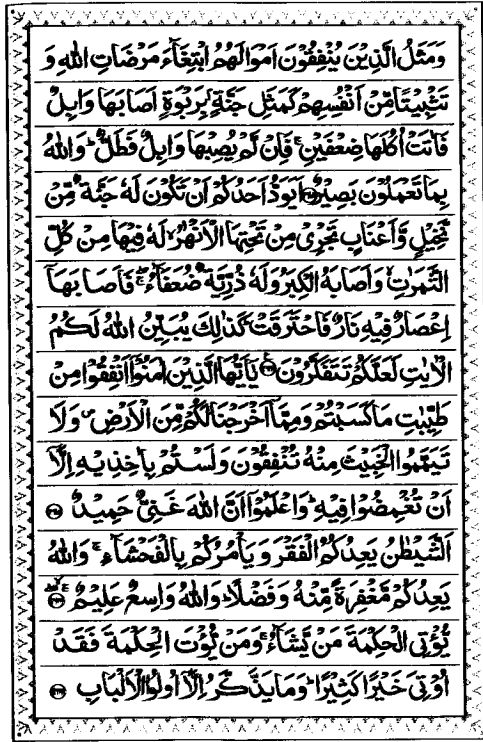 وَمَثَلُ الَّذِيْنَ يُنْفِقُوْنَ اَمْوَالَهُمُ ابْتِغَآءَ مَرْضَاتِ اللّٰهِ وَ
تَثْبِيْتًا مِّنْ اَنْفُسِهِمْ كَمَثَلِ جَنَّةٍۭ بِرَبْوَةٍ اَصَابَهَا وَابِلٌ
فَاٰتَتْ اُكُلَهَا ضِعْفَيْنِ ۚ فَاِنْ لَّمْ يُصِبْهَا وَابِلٌ فَطَلٌّ ؕ وَاللّٰهُ
بِمَا تَعْمَلُوْنَ بَصِيْرٌ ﴿۲۶۵﴾ اَيَوَدُّ اَحَدُكُمْ اَنْ تَكُوْنَ لَهٗ جَنَّةٌ مِّنْ
نَّخِيْلٍ وَّاَعْنَابٍ تَجْرِيْ مِنْ تَحْتِهَا الْاَنْهٰرُ ۙ لَهٗ فِيْهَا مِنْ كُلِّ
الثَّمَرٰتِ ۙ وَاَصَابَهُ الْكِبَرُ وَلَهٗ ذُرِّيَّةٌ ضُعَفَآءُ ۖ فَاَصَابَهَآ
اِعْصَارٌ فِيْهِ نَارٌ فَاحْتَرَقَتْ ؕ كَذٰلِكَ يُبَيِّنُ اللّٰهُ لَكُمُ
الْاٰيٰتِ لَعَلَّكُمْ تَتَفَكَّرُوْنَ ﴿۲۶۶﴾ يٰٓاَيُّهَا الَّذِيْنَ اٰمَنُوْٓا اَنْفِقُوْا مِنْ
طَيِّبٰتِ مَا كَسَبْتُمْ وَمِمَّآ اَخْرَجْنَا لَكُمْ مِّنَ الْاَرْضِ ۪ وَلَا
تَيَمَّمُوا الْخَبِيْثَ مِنْهُ تُنْفِقُوْنَ وَلَسْتُمْ بِاٰخِذِيْهِ اِلَّآ
اَنْ تُغْمِضُوْا فِيْهِ ؕ وَاعْلَمُوْٓا اَنَّ اللّٰهَ غَنِيٌّ حَمِيْدٌ ﴿۲۶۷﴾
اَلشَّيْطٰنُ يَعِدُكُمُ الْفَقْرَ وَيَاْمُرُكُمْ بِالْفَحْشَآءِ ۚ وَاللّٰهُ
يَعِدُكُمْ مَّغْفِرَةً مِّنْهُ وَفَضْلًا ؕ وَاللّٰهُ وَاسِعٌ عَلِيْمٌ ﴿۲۶۸﴾
يُّؤْتِي الْحِكْمَةَ مَنْ يَّشَآءُ ۚ وَمَنْ يُّؤْتَ الْحِكْمَةَ فَقَدْ
اُوْتِيَ خَيْرًا كَثِيْرًا ؕ وَمَا يَذَّكَّرُ اِلَّآ اُولُوا الْاَلْبَابِ ﴿۲۶۹﴾